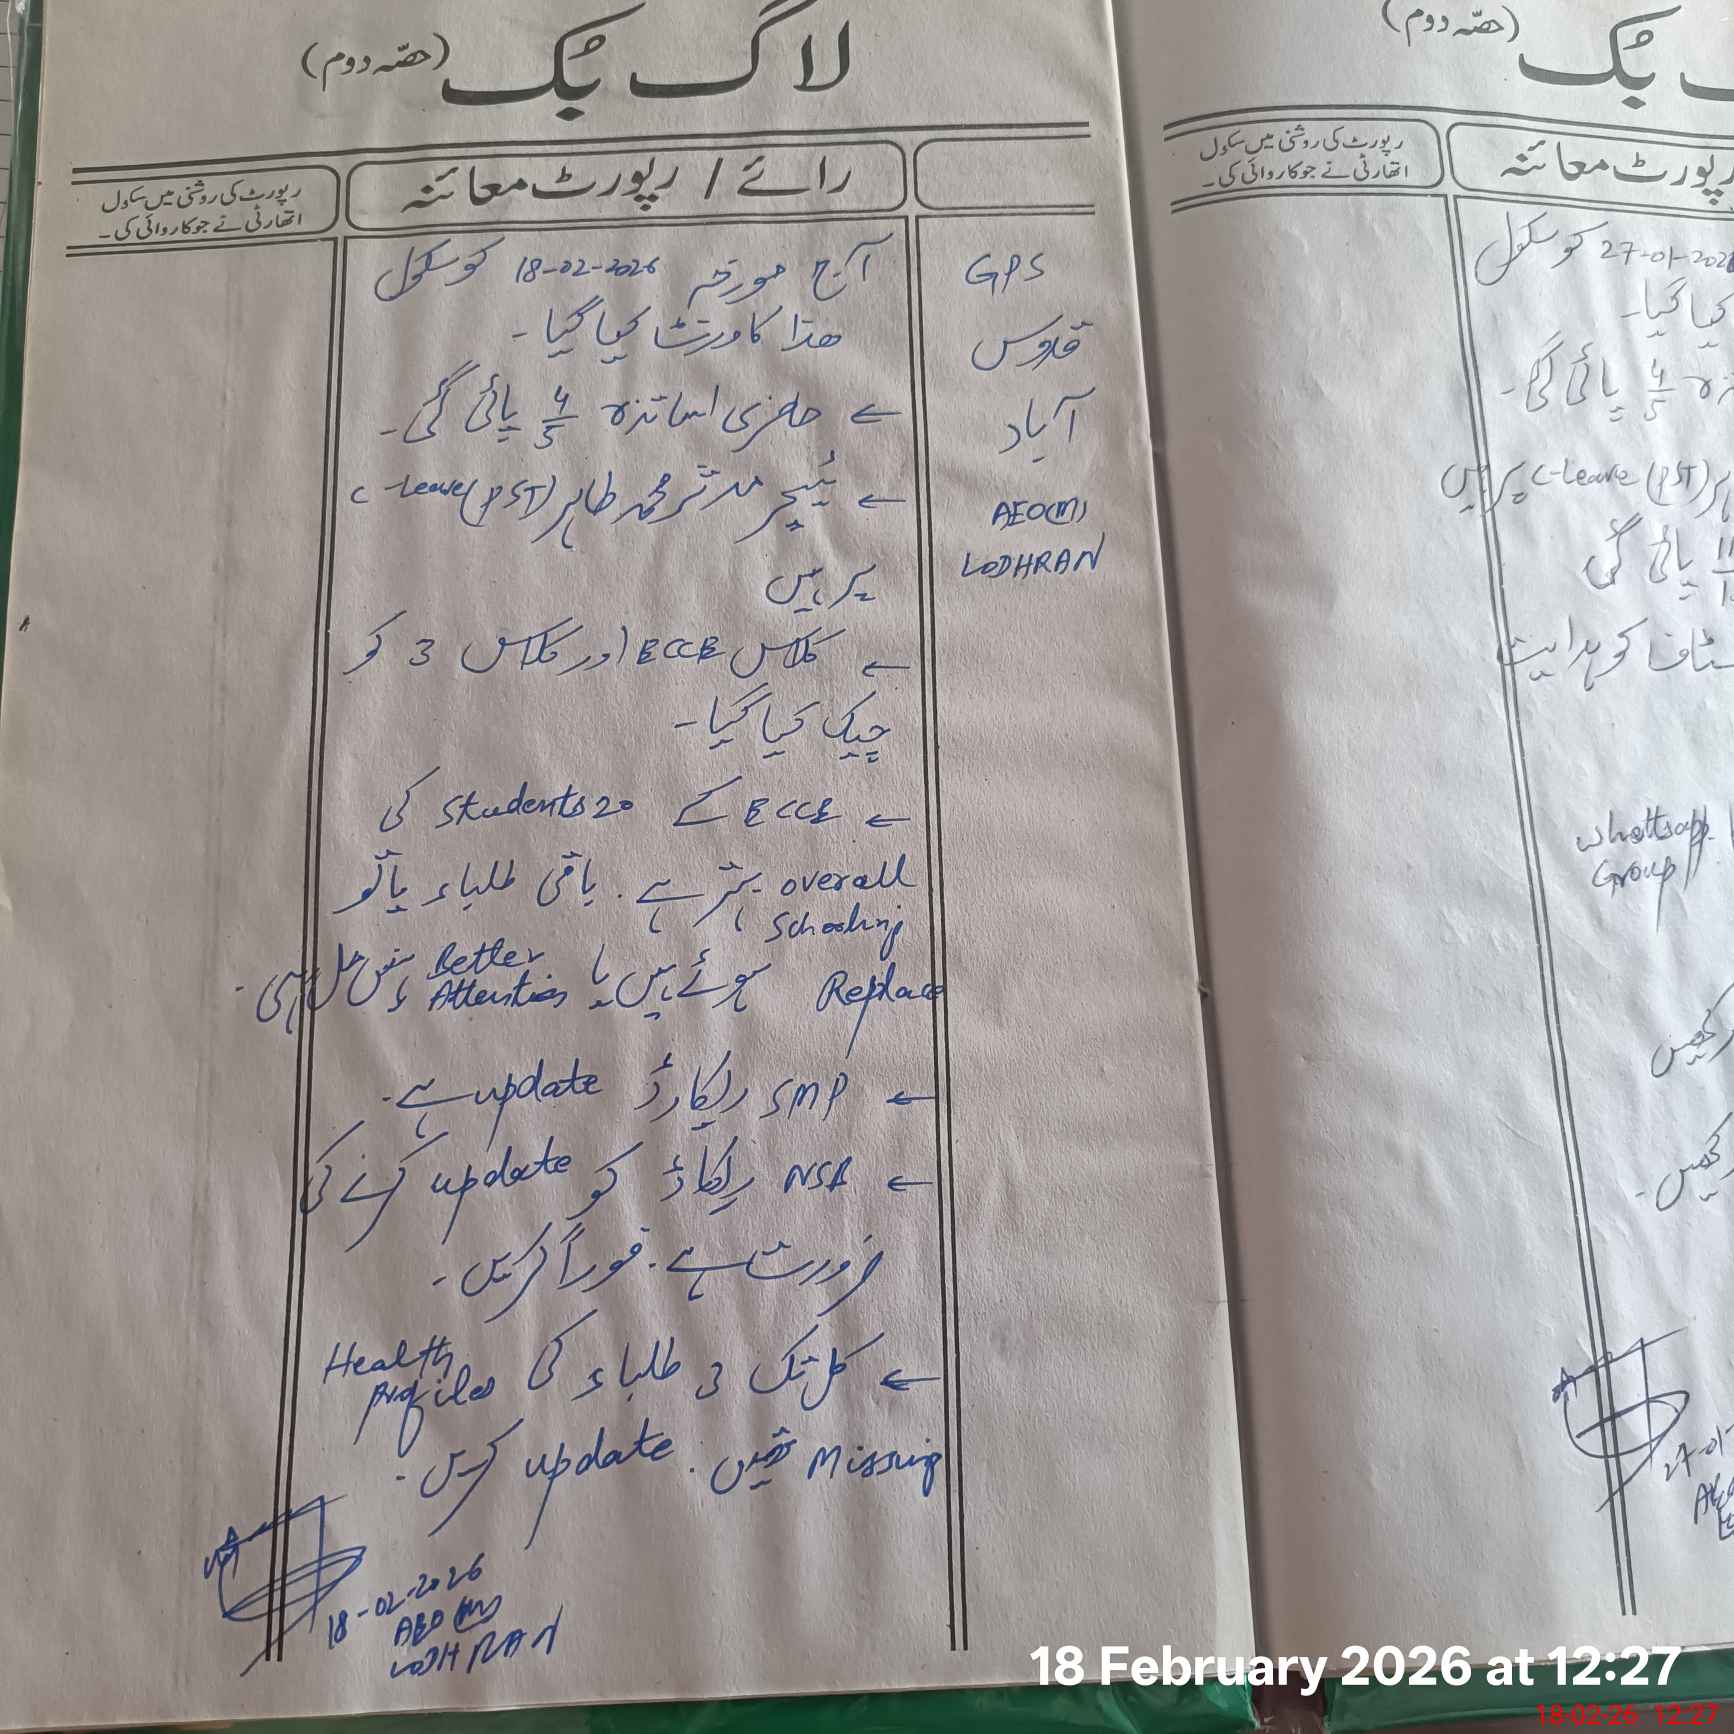 لاگ بُک (حصّہ دوم)
رائے / رپورٹ معائنہ
رپورٹ کی روشنی میں سکول
اتھارٹی نے جو کاروائی کی۔
GPS
قدوس
آباد
AEO(M)
LODHRAN
آج مورخہ 18-02-2026 کو سکول
ھذا کا وزٹ کیا گیا۔
← حاضری اساتذہ 4/5 پائی گئی۔
← ٹیچر مدثر محمد طاہر (PST) C-Leave
پر ہیں
← کلاس ECCE اور کلاس 3 کو
چیک کیا گیا۔
← ECCE کے 20 Students کی
overall Schooling بہتر ہے۔ باقی طلباء یا تو
Replace ہوئے ہیں یا Better Attention نہیں مل رہی۔
← SMP ریکارڈ update ہے۔
← NSB ریکارڈ کو update کرنے کی
ضرورت ہے۔ فوراً کریں۔
← کل تک 3 طلباء کی Health Profiles
Missing تھیں۔ update کریں۔
18-02-2026
AEO(M)
LODHRAN
بُک (حصّہ دوم)
رپورٹ معائنہ
رپورٹ کی روشنی میں سکول
اتھارٹی نے جو کاروائی کی۔
27-01-202 کو سکول
کیا گیا۔
4/5 پائی گئی۔
(PST) C-Leave پر ہیں
پائی گئی
سٹاف کو ہدایت
Whattsapp
Group
رکھیں
رکھیں۔
27-01-
18 February 2026 at 12:27
18-02-26 12:27